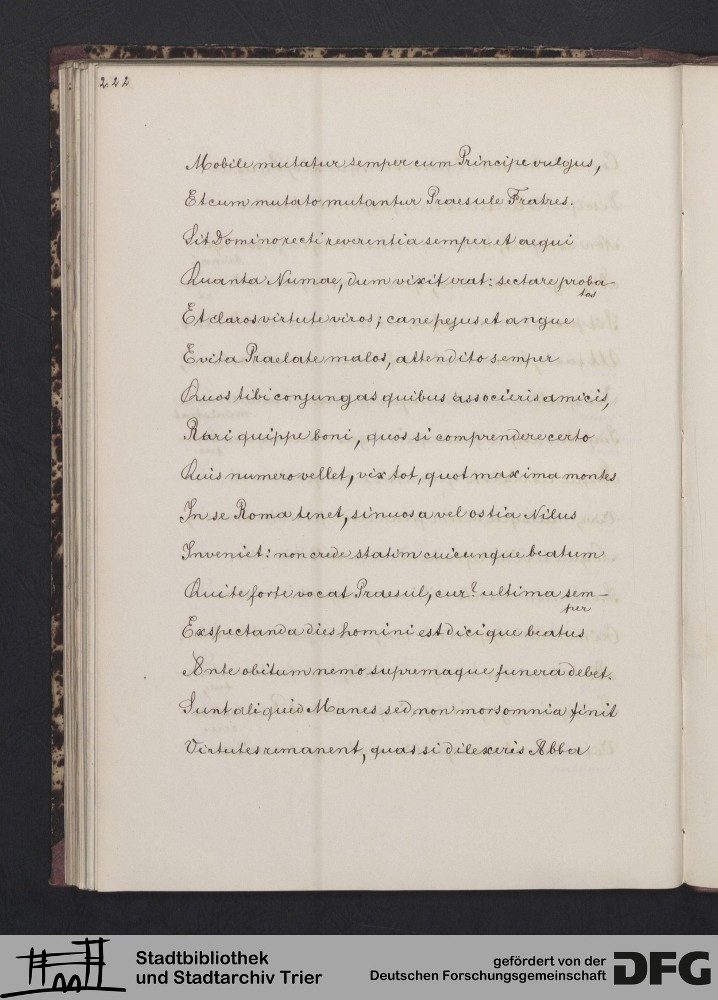 222
Mobile mutatur semper cum Principe vulgus,
Et cum mutato mutantur Praesule Fratres.
Sit Domino recti reverentia semper et aequi
Quanta Numae, dum vixit erat: sectare proba-
tos
Et claros virtute viros; cane pejus et angue
Evita Praelate malos, attendito semper
Quos tibi conjungas quibus associeris amicis,
Rari quippe boni, quos si comprendere certo
Quis numero vellet, vix tot, quot maxima montes
In se Roma tenet, sinuosa vel ostia Nilus
Inveniet: non crede statim cuicunque beatum
Qui te forte vocat Praesul, cur? ultima sem-
per
Exspectanda dies homini est dicique beatus
Ante obitum nemo supremaque funera debet.
Sunt aliquid Manes sed non mors omnia finit
Virtutes remanent, quas si dilexeris Abba
Stadtbibliothek
und Stadtarchiv Trier
gefördert von der
Deutschen Forschungsgemeinschaft
DFG